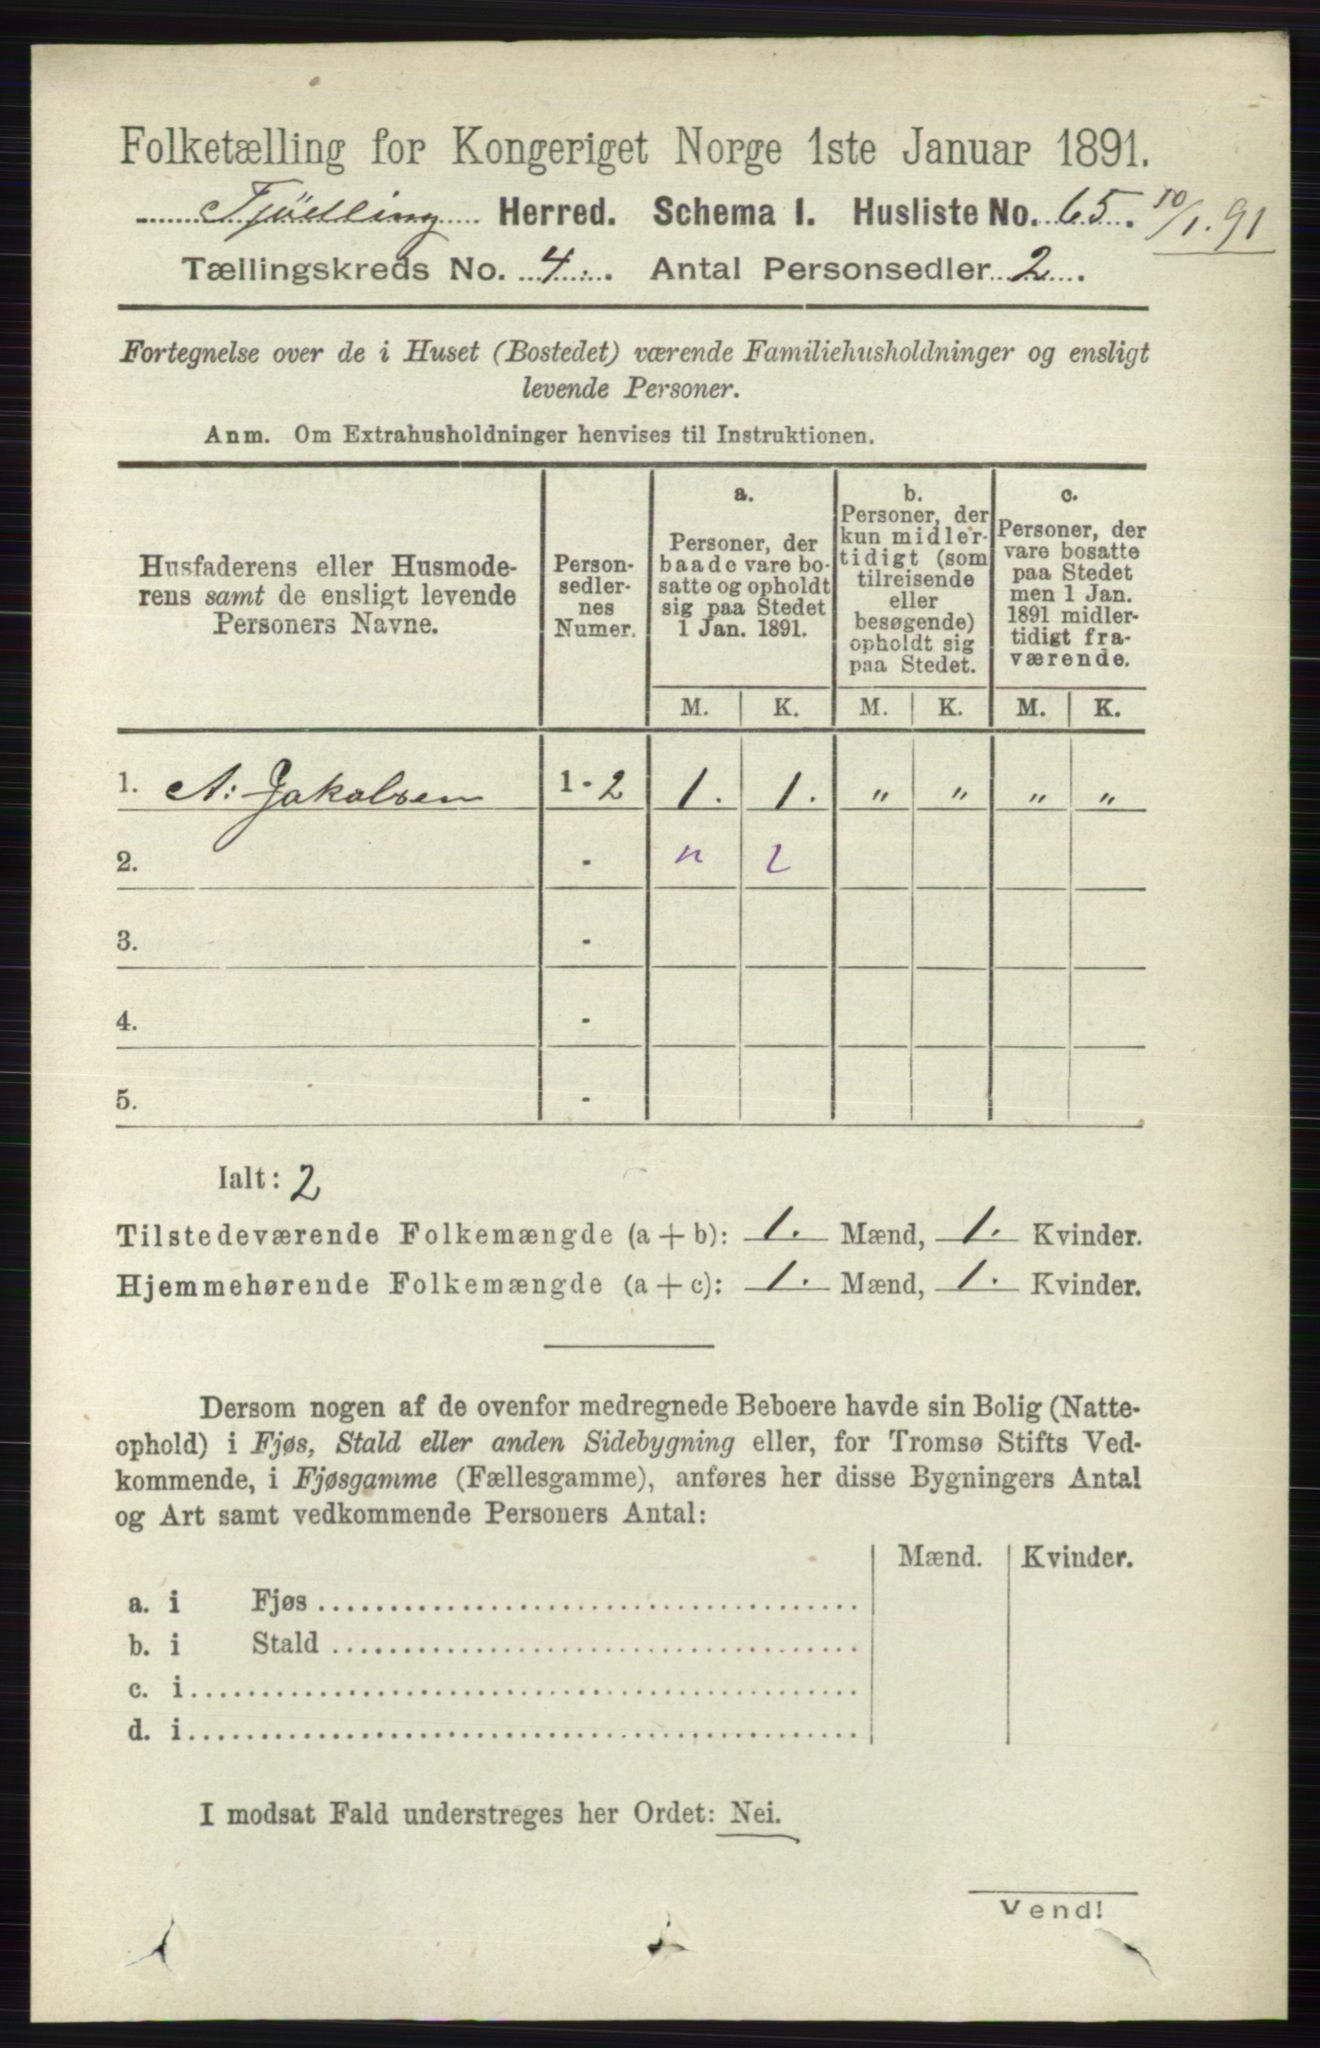 Folketælling for Kongeriget Norge 1ste Januar 1891.
Tjölling Herred. Schema I. Husliste No. 65. 10/1.91
Tællingskreds No. 4. Antal Personsedler 2.
Fortegnelse over de i Huset (Bostedet) værende Familiehusholdninger og ensligt
levende Personer.
Anm. Om Extrahusholdninger henvises til Instruktionen.
Husfaderens eller Husmode-
rens samt de ensligt levende
Personers Navne.
Person-
sedler-
nes
Numer.
a.
Personer, der
baade vare bo-
satte og opholdt
sig paa Stedet
1 Jan. 1891.
b.
Personer, der
kun midler-
tidigt (som
tilreisende
eller
besøgende)
opholdt sig
paa Stedet.
c.
Personer, der
vare bosatte
paa Stedet
men 1 Jan.
1891 midler-
tidigt fra-
værende.
M. K. M. K. M. K.
1. A: Jakobsen 1 - 2 1. 1. " " " "
2. - n 2
3. -
4. -
5. -
Ialt: 2
Tilstedeværende Folkemængde (a + b): 1. Mænd, 1. Kvinder.
Hjemmehørende Folkemængde (a + c): 1. Mænd, 1. Kvinder.
Dersom nogen af de ovenfor medregnede Beboere havde sin Bolig (Natte-
ophold) i Fjøs, Stald eller anden Sidebygning eller, for Tromsø Stifts Ved-
kommende, i Fjøsgamme (Fællesgamme), anføres her disse Bygningers Antal
og Art samt vedkommende Personers Antal:
Mænd. Kvinder.
a. i Fjøs
b. i Stald
c. i
d. i
I modsat Fald understreges her Ordet: Nei.
Vend!